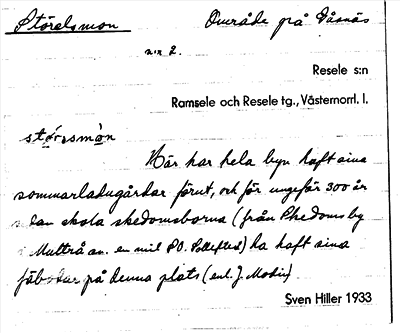 Störelsmon Område på Åsnäs
n:r 2.
Resele s:n
Ramsele och Resele tg., Västernorrl. l.
Här har hela byn haft sina
sommarladugårdar förut, och för ungefär 300 år
skola skedomsborna (från Skedoms by
Multrå sn. en mil SV. Sollefteå) ha haft sina
fäbodar på denna plats (enl. J. Modin)
Sven Hiller 1933